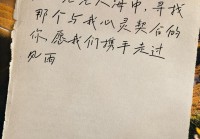 人海中,寻找
那个与我心灵契合的
你,愿我们携手走过
风雨